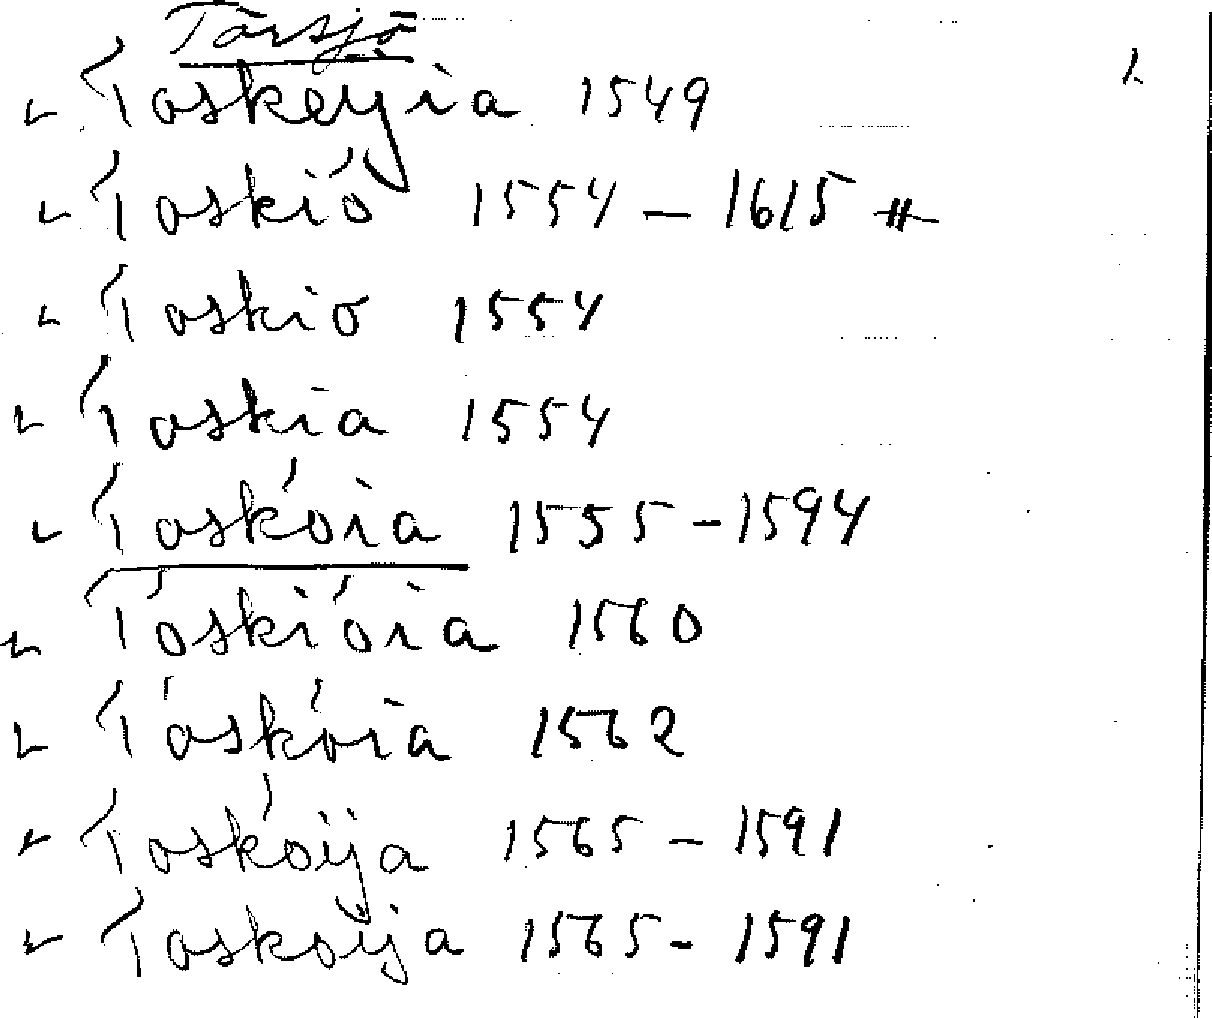 Törsjö
Toskeyia 1549
Toskió 1554 – 1615 #
Toskio 1554
Toskia 1554
Toskóia 1555 – 1594
Tóskióia 1560
Tóskóia 1562
Toskóija 1565 – 1591
Toskoija 1565 – 1591